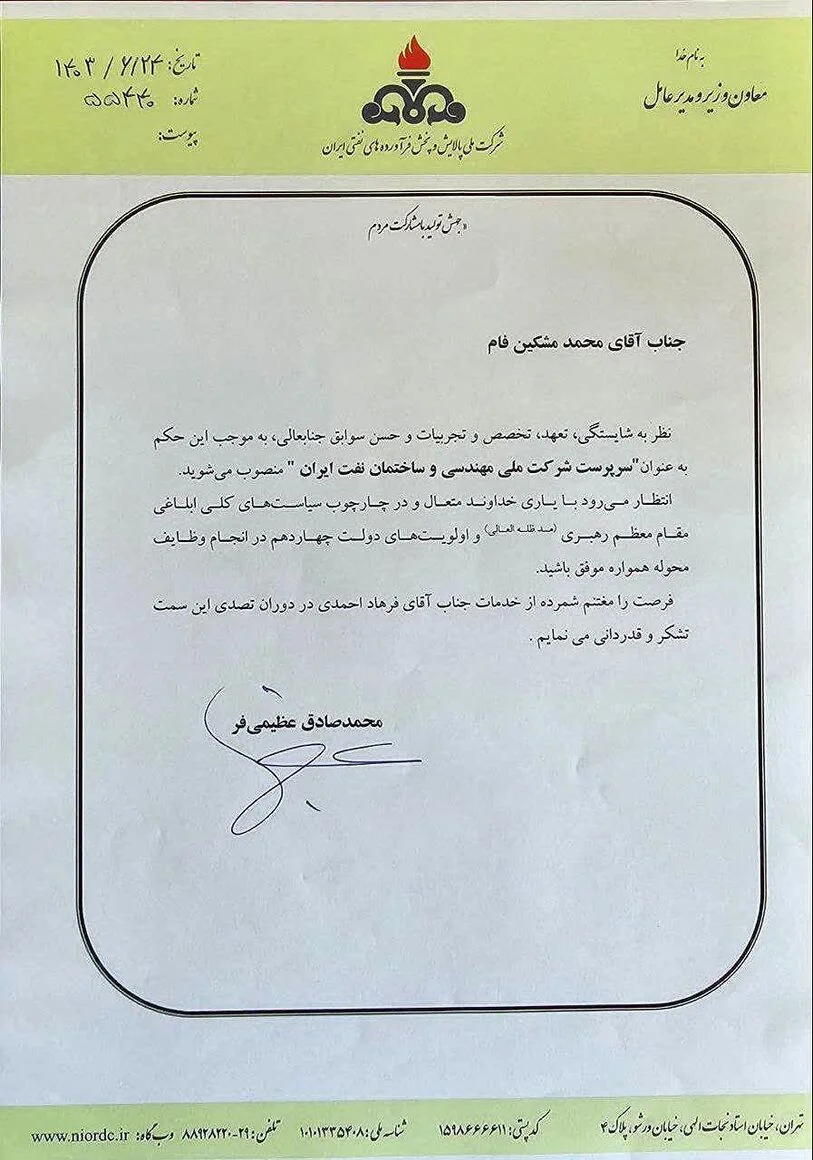 به نام خدا
معاون وزیر و مدیر عامل
شرکت ملی پالایش و پخش فرآورده های نفتی ایران
تاریخ: ۱۴۰۳ / ۶/۲۴
شماره: ۵۵۴۴۰
پیوست:
«جهش تولید با مشارکت مردم
جناب آقای محمد مشکین فام
نظر به شایستگی، تعهد، تخصص و تجربیات و حسن سوابق جنابعالی، به موجب این حکم
به عنوان"سرپرست شرکت ملی مهندسی و ساختمان نفت ایران " منصوب می‌شوید.
انتظار می‌رود با یاری خداوند متعال و در چارچوب سیاست‌های کلی ابلاغی
مقام معظم رهبری (مد ظله العالی) و اولویت‌های دولت چهاردهم در انجام وظایف
محوله همواره موفق باشید.
فرصت را مغتنم شمرده از خدمات جناب آقای فرهاد احمدی در دوران تصدی این سمت
تشکر و قدردانی می نمایم .
محمدصادق عظیمی‌فر
تهران، خیابان استاد نجات الهی، خیابان ورشو، پلاک ۴ کد پستی: ۱۵۹۸۶۶۶۶۱۱ شناسه ملی: ۱۰۱۰۱۳۳۵۴۰۸ تلفن: ۲۹-۸۸۹۲۸۲۲۰ وب گاه: www.niordc.ir